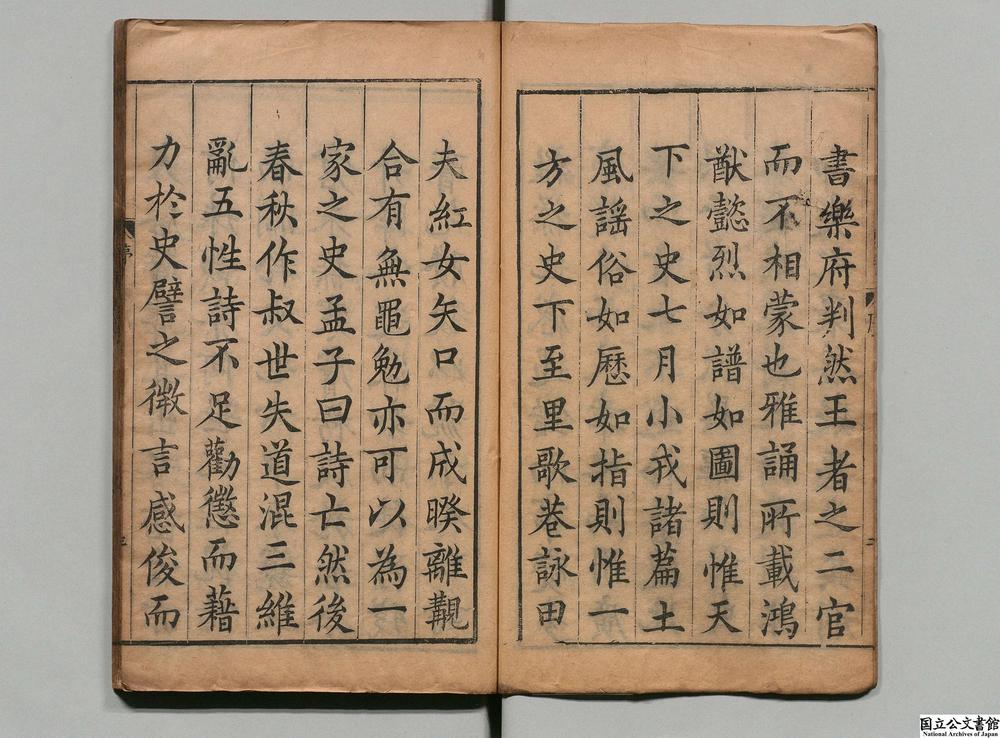 書樂府判然王者之二官
而不相蒙也雅誦所載鴻
猷懿烈如譜如圖則惟天
下之史七月小戎諸篇土
風謡俗如歷如指則惟一
方之史下至里歌巷詠田
夫紅女矢口而成睽離覯
合有無黽勉亦可以為一
家之史孟子曰詩亡然後
春秋作叔世失道混三維
亂五性詩不足勸懲而藉
力於史譬之微言感俊而
序
二
三
国立公文書館
National Archives of Japan